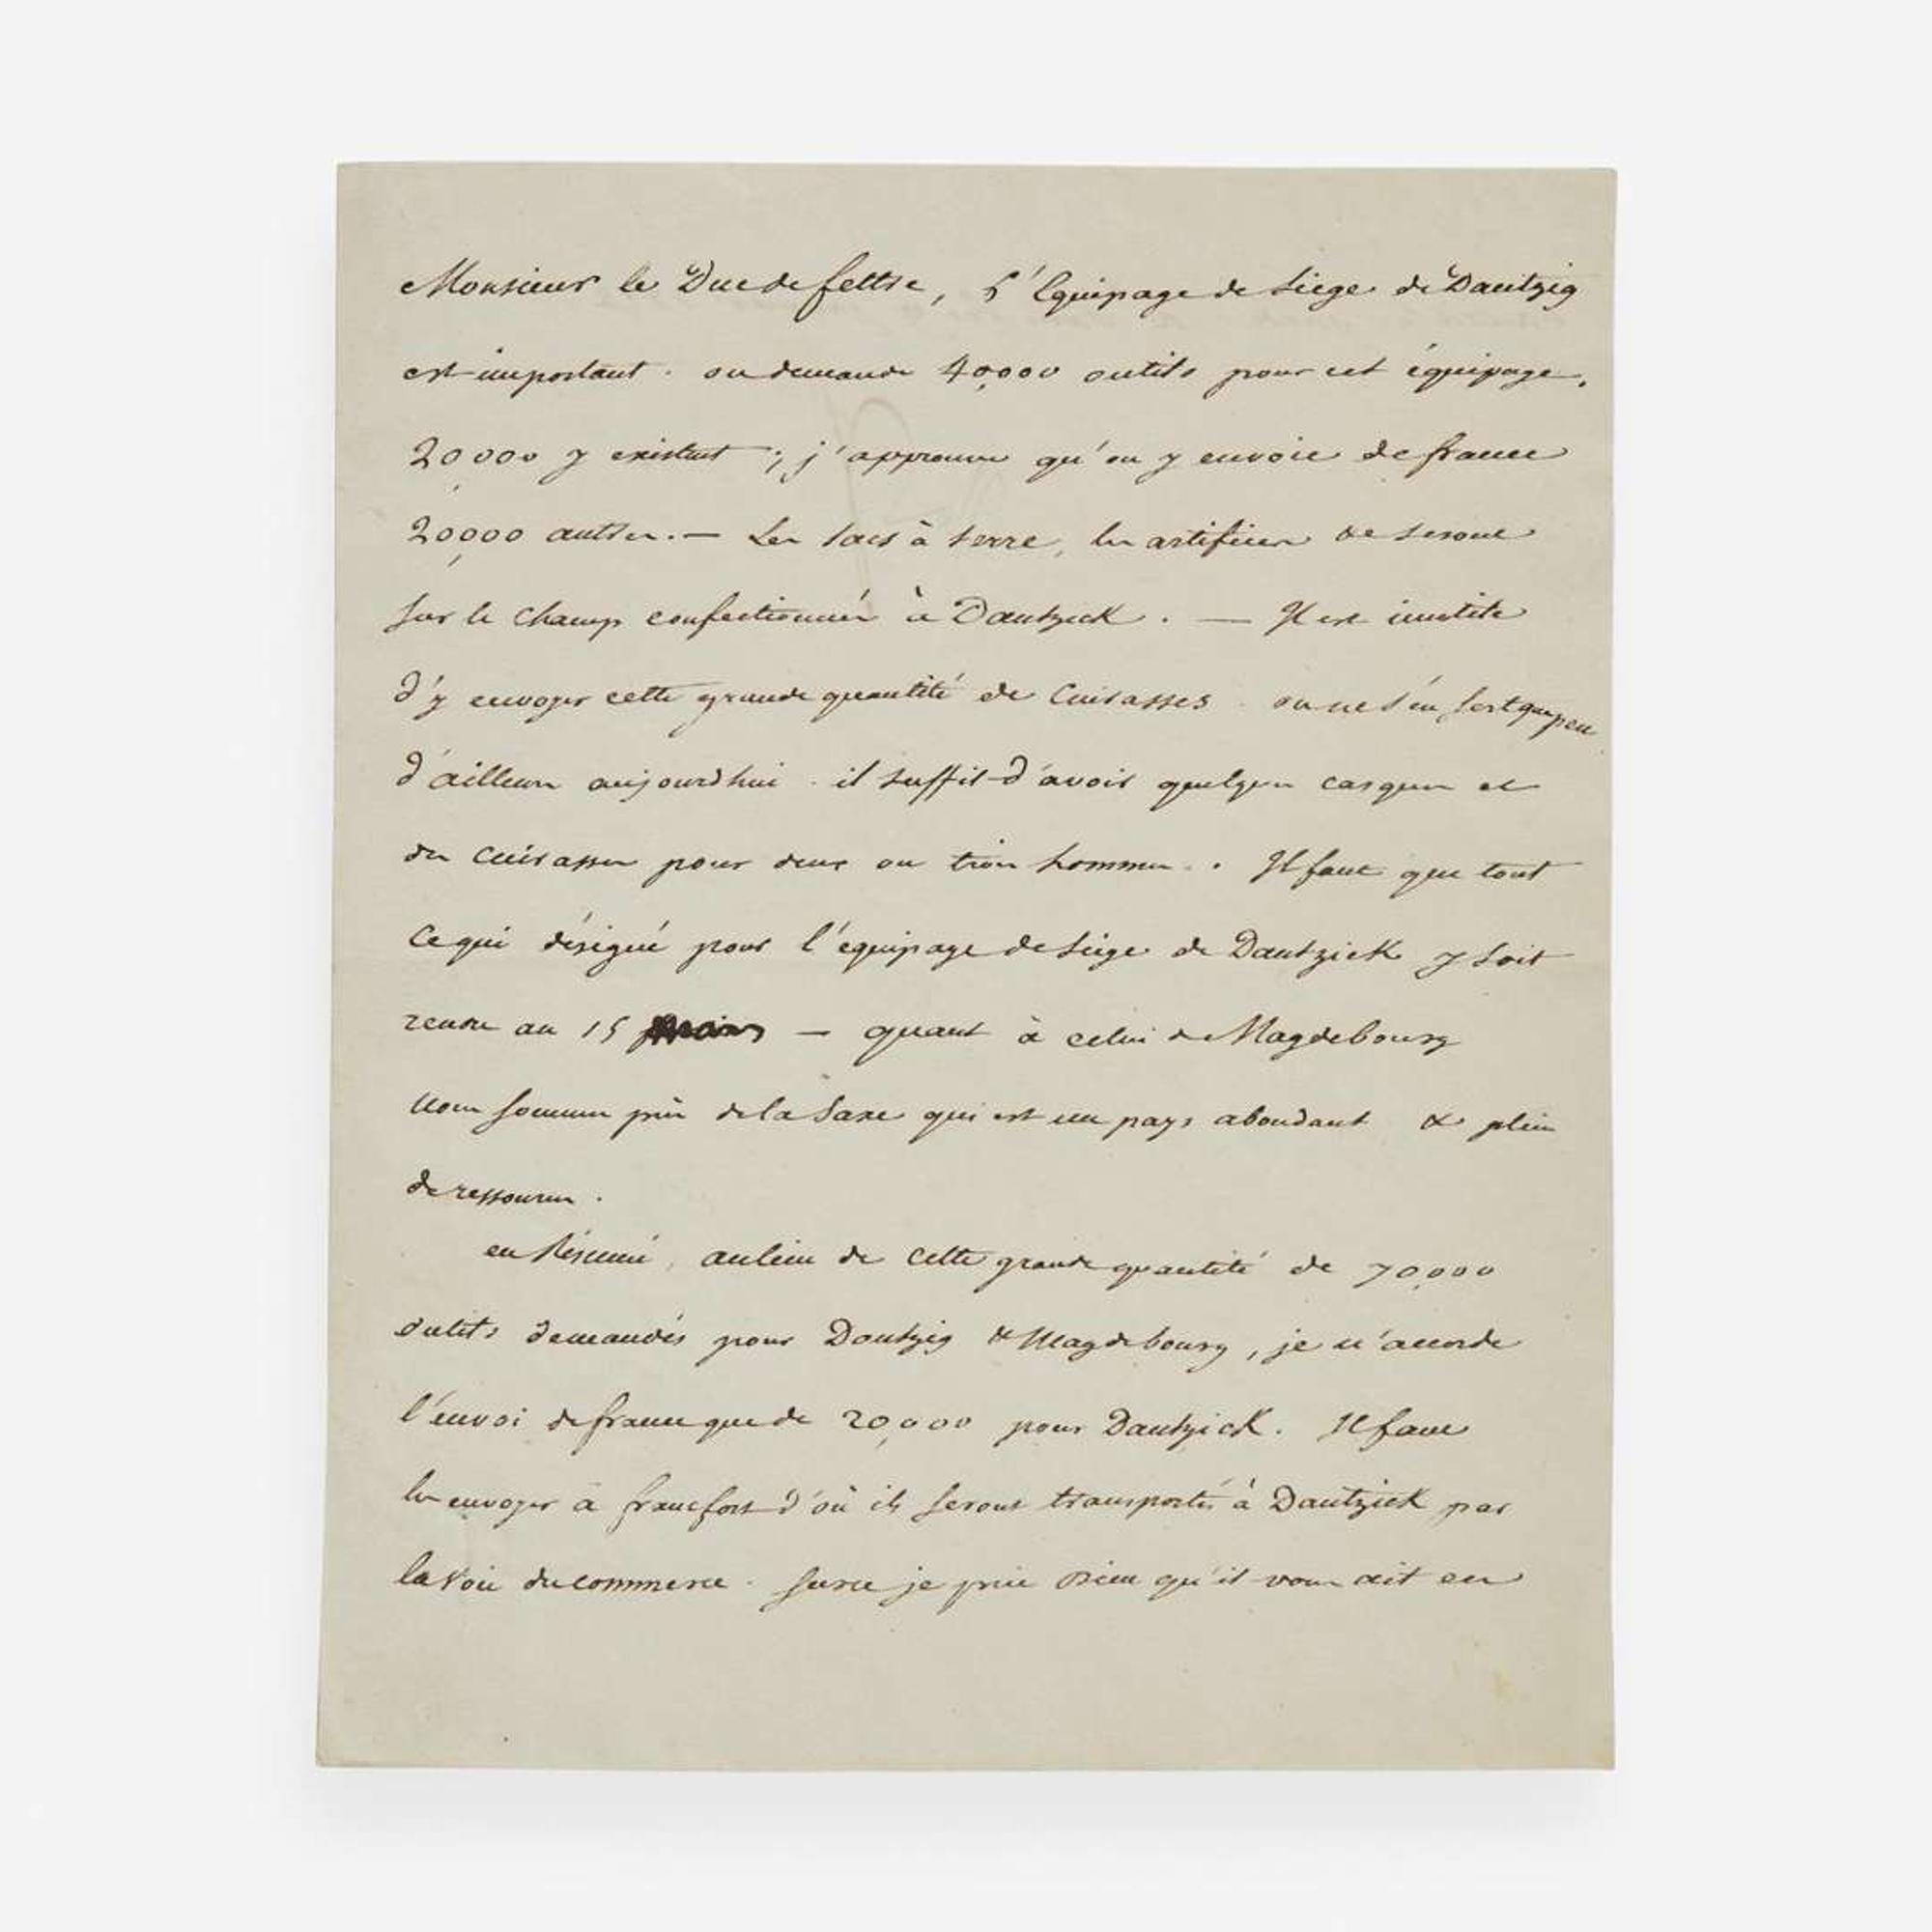 Monsieur le Duc de feltre, L'Equipage de siege de Dantzig
est important. on demande 40,000 outils pour cet équipage.
20,000 y existent ; j'approuve qu'on y envoie de france
20,000 autres. — Les sacs à terre, les artifices &c seront
sur le champ confectionnés à Dantzick. — Il est inutile
d'y envoyer cette grande quantité de Cuirasses. on ne s'en sert que peu
d'ailleurs aujourdhui. il suffit d'avoir quelques casques et
des Cuirasses pour deux ou trois hommes. Il faut que tout
ce qui désigné pour l'équipage de siége de Dantzick y soit
rendu au 15 mars — quant à celui de Magdebourg
nous sommes près de la Saxe qui est un pays abondant & plein
de ressources.
en Résumé, aulieu de cette grande quantité de 70,000
outils demandés pour Dantzig & Magdebourg, je n'accorde
l'envoi de france que de 20,000 pour Dantzick. Il faut
les envoyer à francfort d'où ils seront transportés à Dantzick par
la voie du commerce. sur ce je prie Dieu qu'il vous ait en